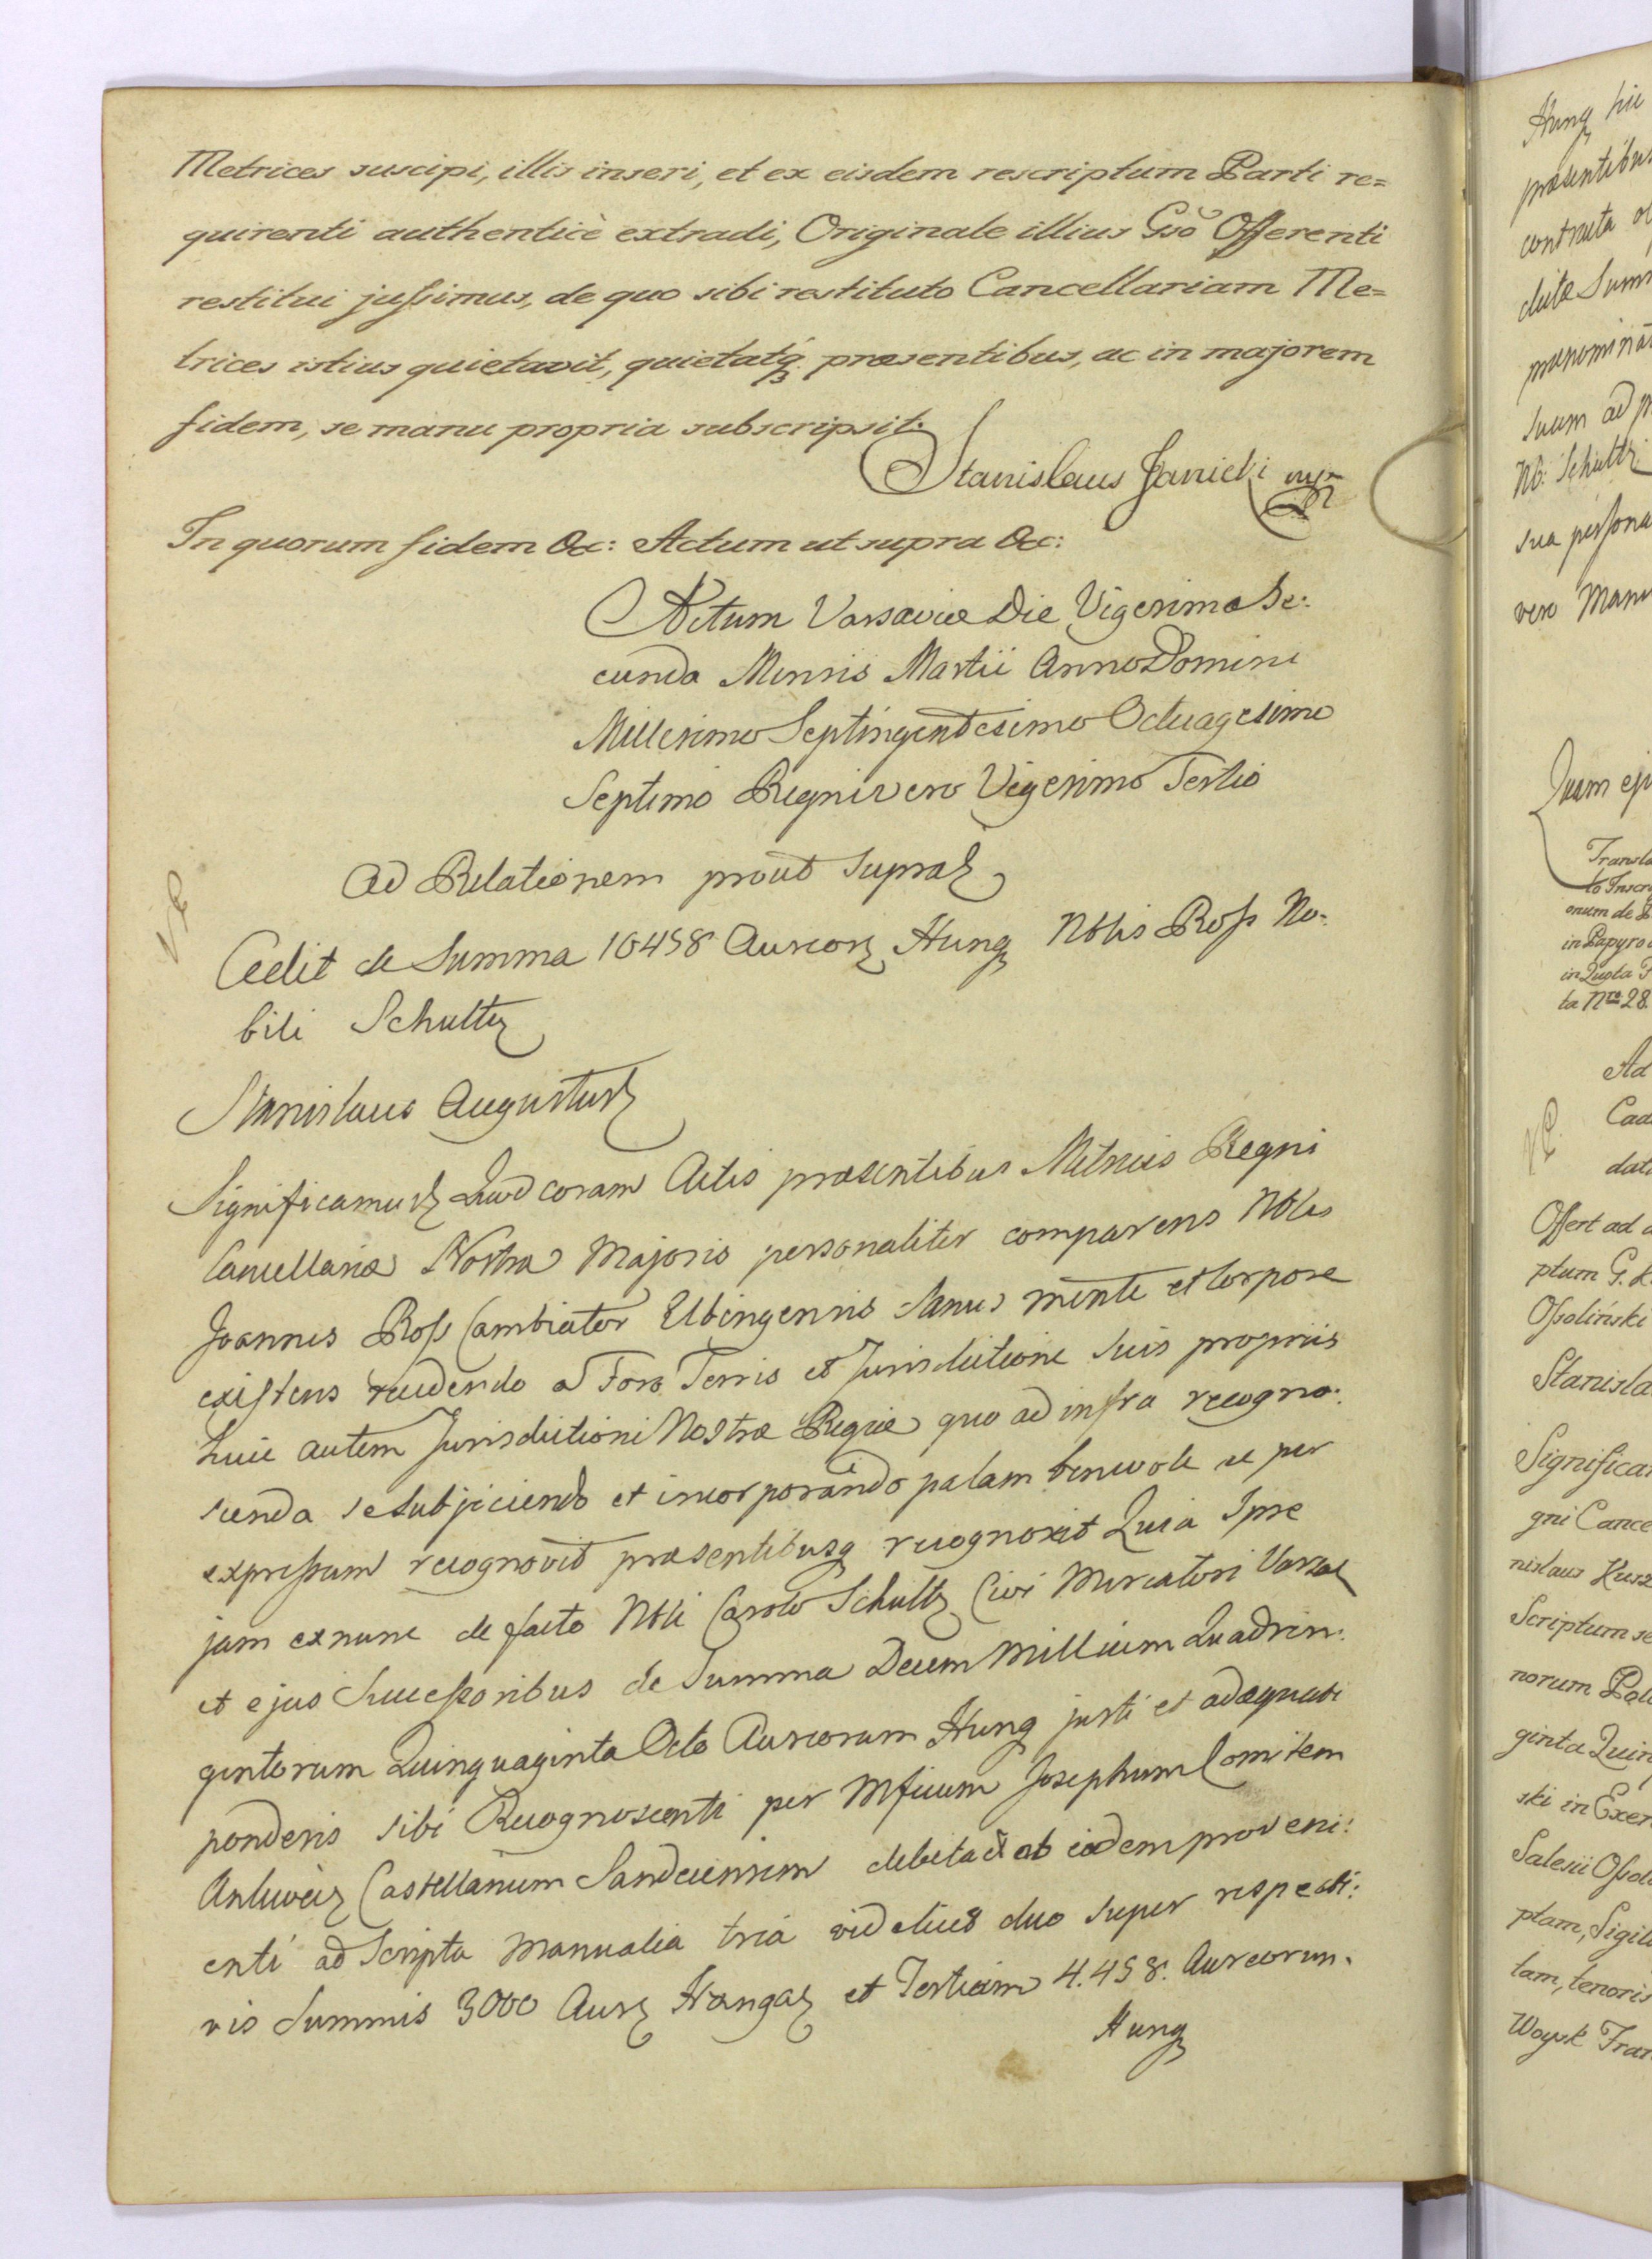 Metrices suscipi, illis inseri, et ex eisdem rescriptum Parti re=
quirenti authenticè extradi, Originale illius Gso Offerenti
restitui jussimus, de quo sibi restituto Cancellariam Me=
trices istius quietavit, quietatq præsentibus, ac in majorem
fidem, se manu propria subscripsit.
Stanislaus Janicki mp
In quorum fidem &c: Actum ut supra &c:
Actum Varsaviæ Die Vigesima Se:
cunda Mensis Martii Anno Domini
Millesimo Septingentesimo Octuagesimo
Septimo Regni vero Vigesimo Tertio
Ad Relationem prout supra
Cedit de Summa 10458 Aureor Hung Nblis Ross No:
bili Schultz
Stanislaus Augustus
Significamus Quod coram Actis præsentibus Metrices Regni
Cancellariæ Nostræ Majoris personaliter comparens Nblis
Joannes Ross Cambiator Elbingensis sanus mente et corpore
existens recedendo a Foro Terris et Jurisdictione suis propriis
huic autem Jurisdictioni Nostræ Regiæ quo ad infra recogno:
scenda se subjiciendo et incorporando palam benevole ac per
expressum recognovit præsentibusq recognoscit Quia Ipse
jam exnunc de facto Nbli Carolo Schultz Civi Mercatori Varsav
et ejus Successoribus de Summa Decem Millium Quadrin:
gentorum Quinquaginta Octo Aureorum Hung justi et adæquati
ponderis sibi Recognoscenti per Mficum Josephum Comitem
Ankwicz Castellanum Sandecensem debita et ab eodem proveni:
enti ad Scripta Manualia tria videlicet duo super respecti:
vis Summis 3000 Aur Hungar et Tertium 4.458. Aureorum.
Hung
Hung
præsentibus
Summ
Nb: Schultz
sua persona
vero Manu
Quam
in Papyro
ta Nro 28.
Ad
Offert ad a
ptum G. K
Ossoliński
Stanisla
Significa
gni Cance
nislaus Kusz
Scriptum se
norum Pol
ginta Quin
ski in Exer
Salesii Ossol
ptam, Sigil
tam, tenoris
Woysk Fran